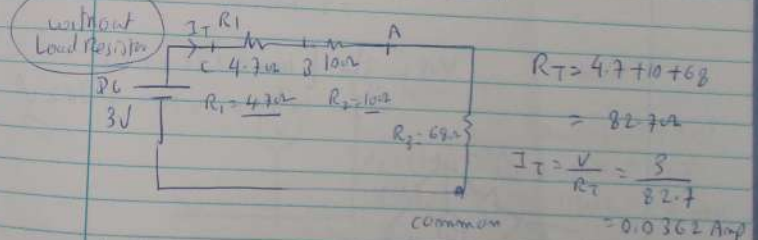 without
Load Resistor
IT R1
A
C 4.7Ω B 10Ω
DC
3V
R1 = 4.7Ω R2 = 10Ω
R3 = 68Ω
common
RT = 4.7 + 10 + 68
= 82.7Ω
IT = V/RT = 3/82.7
= 0.0362 Amp